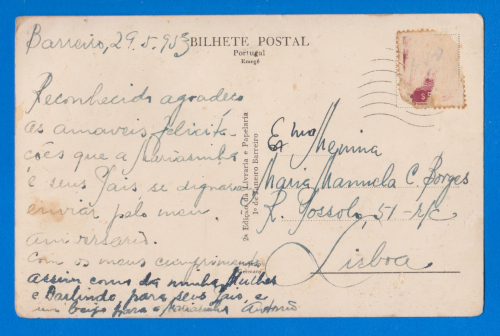 Barreiro, 29.5.953
BILHETE POSTAL
Portugal
Emegê
Reconhecido agradeço
as amaveis felicita-
ções que a Mariasinha
e seus Pais se dignaram
enviar pelo meu
aniversario.
Com os meus cumprimentos
assim como da minha Mulher
e Baslindo para seus Pais, e
um beijo para a Mariasinha António
2ª Edição da Livraria e Papelaria
1º de Janeiro Barreiro
Exma Menina
Maria Manuela C. Borges
R. Possolo, 51-r/c
Lisboa